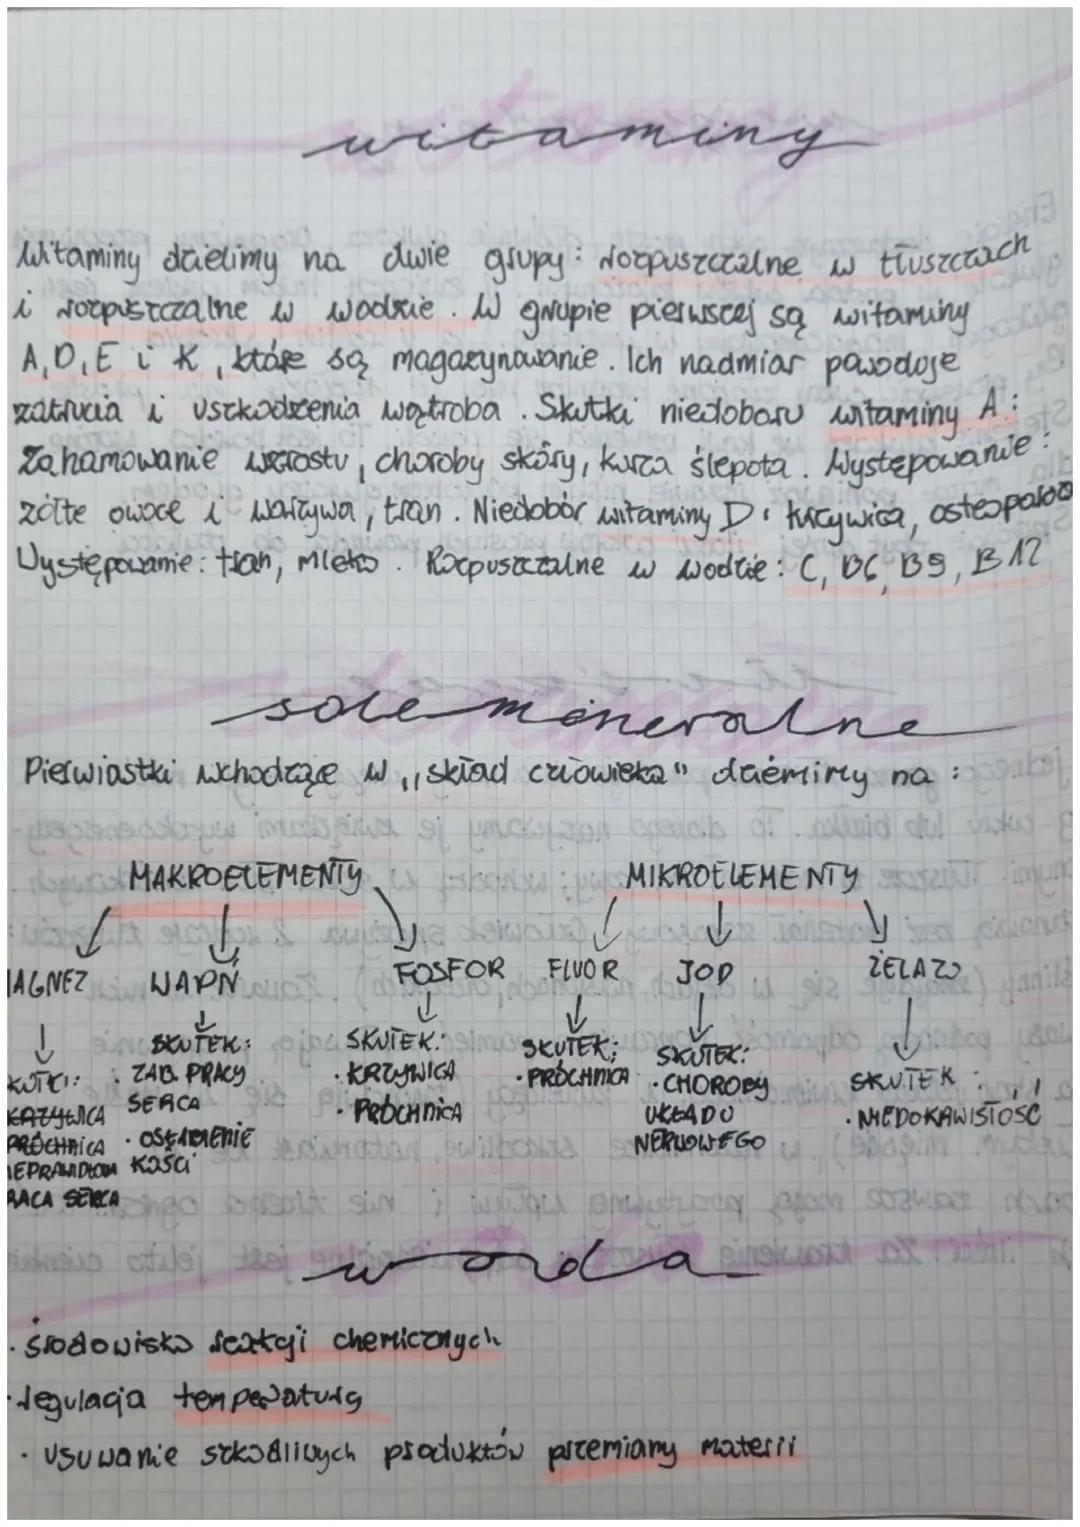 witaminy
Witaminy dzielimy na dwie grupy: rozpuszczalne w tłuszczach
i rozpuszczalne w wodzie. W grupie pierwszej są witaminy
A, D, E i K, które są magazynowanie. Ich nadmiar powoduje
zatrucia i uszkodzenia wątroba. Skutki niedoboru witaminy A:
Zahamowanie wzrostu, choroby skóry, kurza ślepota. Występowanie:
żółte owoce i warzywa, tran. Niedobór witaminy D: krzywica,
Występowanie: tran, mleko. Rozpuszczalne w wodzie: C, B6, B9, B12
sole mineralne
Pierwiastki wchodzące w ,,skład człowieka" na:
MAKROELEMENTY MIKROELEMENTY
AGNEZ WAPŃ FOSFOR FLUOR JOD ŻELAZO
SKUTEK: SKUTEK: SKUTEK: SKUTEK: SKUTEK:
KUTKI: · ZAB. PRACY · KRZYWICA · PRÓCHNICA · CHOROBY · NIEDOKRWISTOŚĆ
KRZYWICA SERCA · PRÓCHNICA UKŁADU
PRÓCHNICA · NERWOWEGO
KOŚCI
RACA SERCA
woda
· środowisko reakcji chemicznych
· regulacja temperatury
· usuwanie szkodliwych produktów przemiany materii